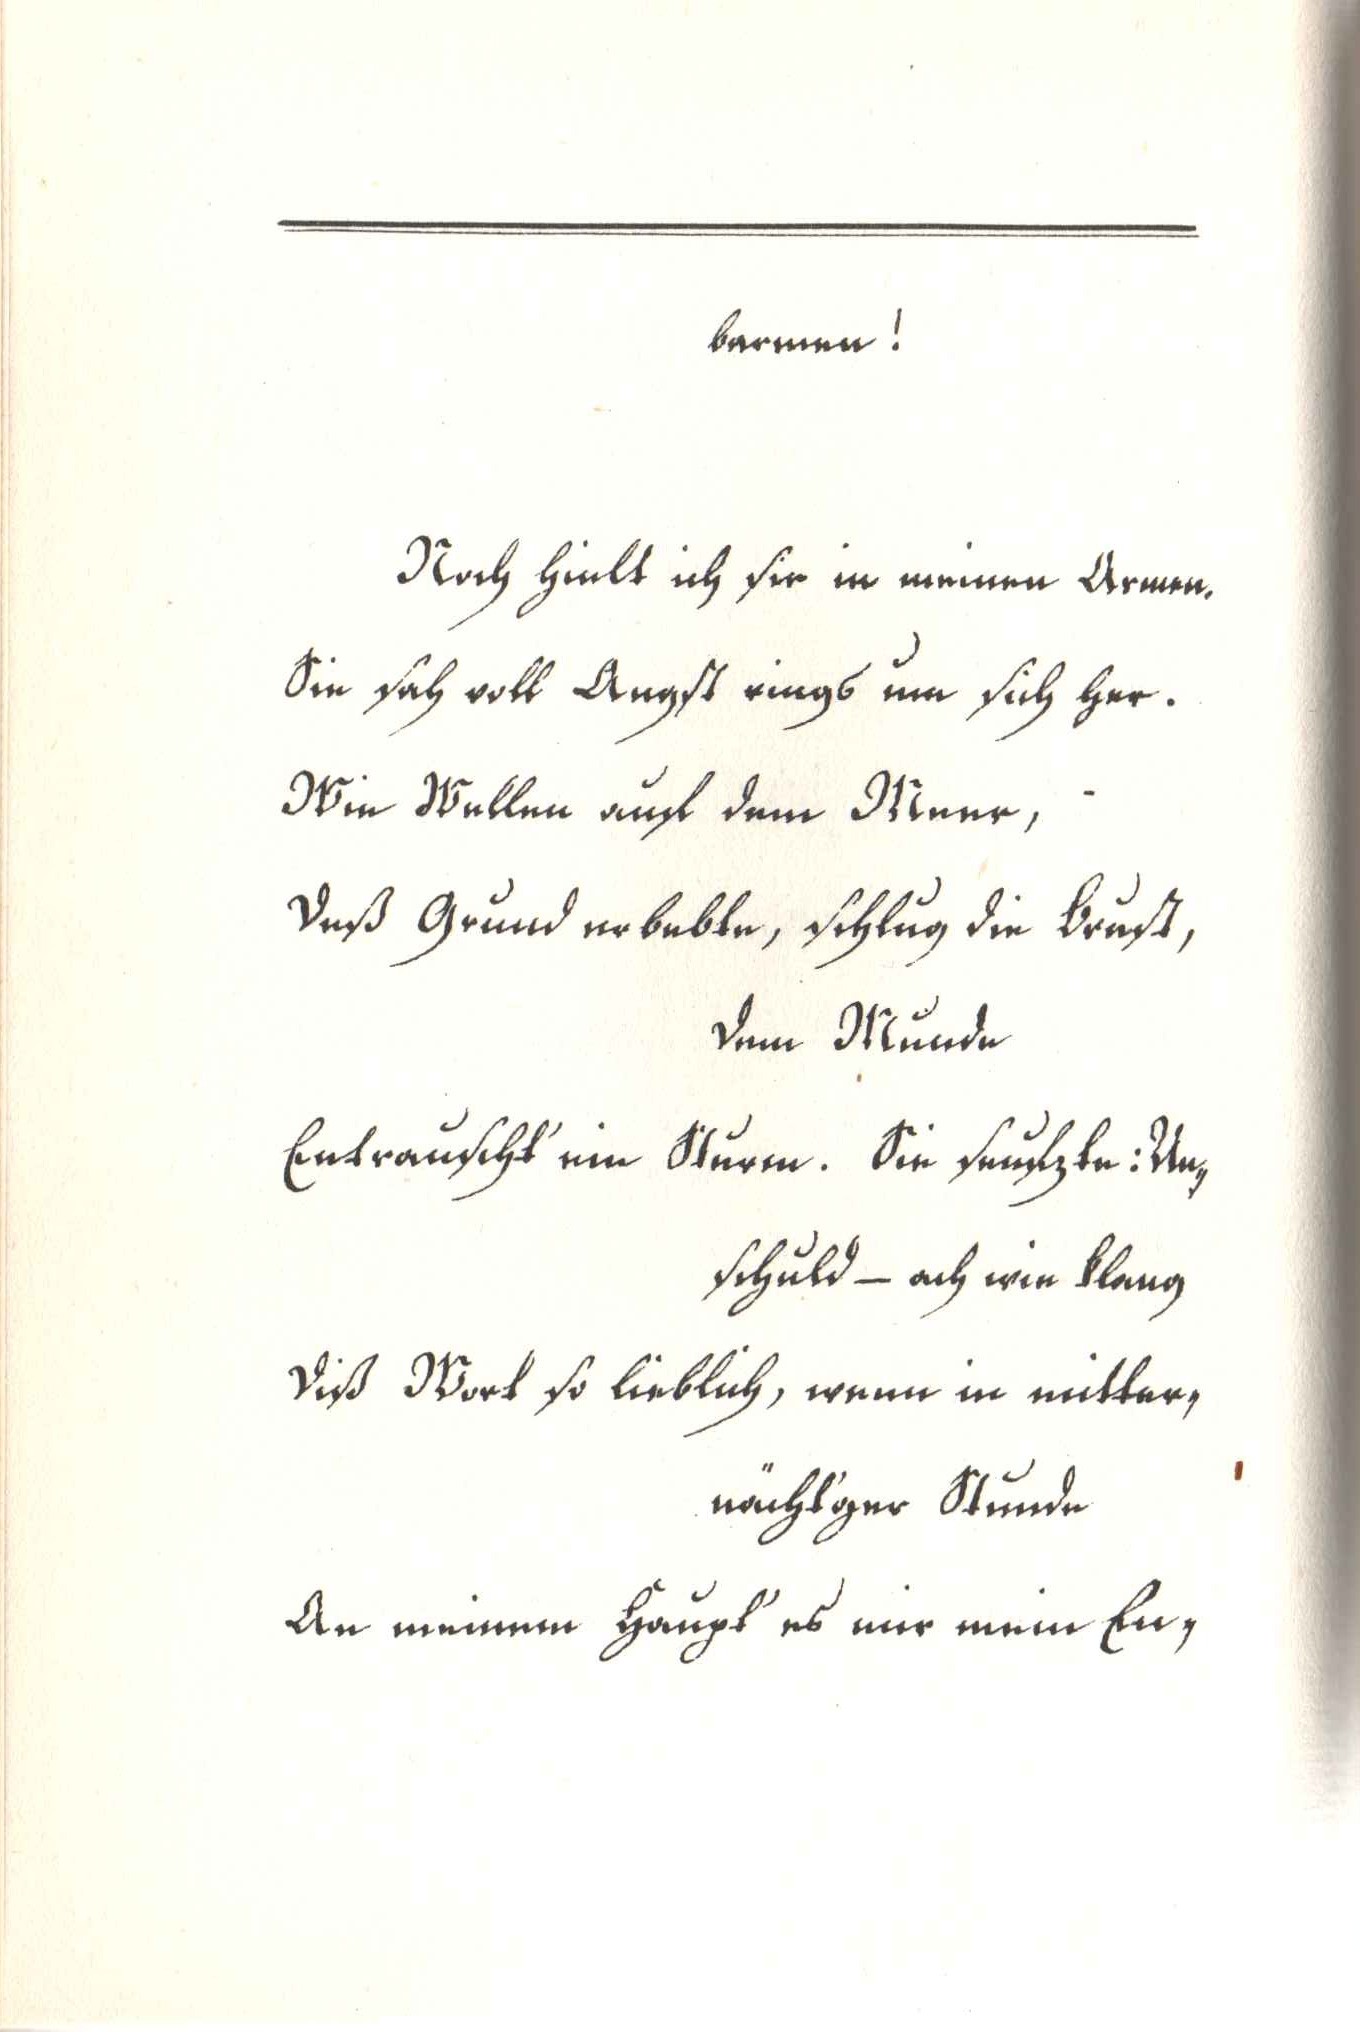 barmen!
Noch hielt ich sie in meinen Armen.
Sie sah voll Angst rings um sich her.
Wie Wellen auf dem Meer,
Deß Grund erbebte, schlug die Brust,
dem Munde
Entrauscht' ein Sturm. Sie seufzte: Un-
schuld – ach wie klang
Diß Wort so lieblich, wenn in mitter-
nächt'ger Stunde
An meinem Haupt' es mir mein En-